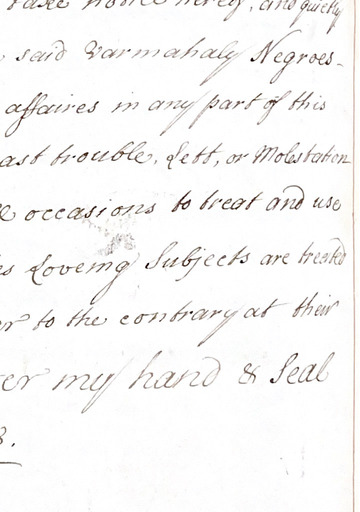 notice hereof, and quietly
said Varmahaly Negroes-
affaires in any part of this
ast trouble, Lett, or Molestation
occasions to treat and use
es Loveing Subjects are treated
er to the contrary at their
er my hand & Seal